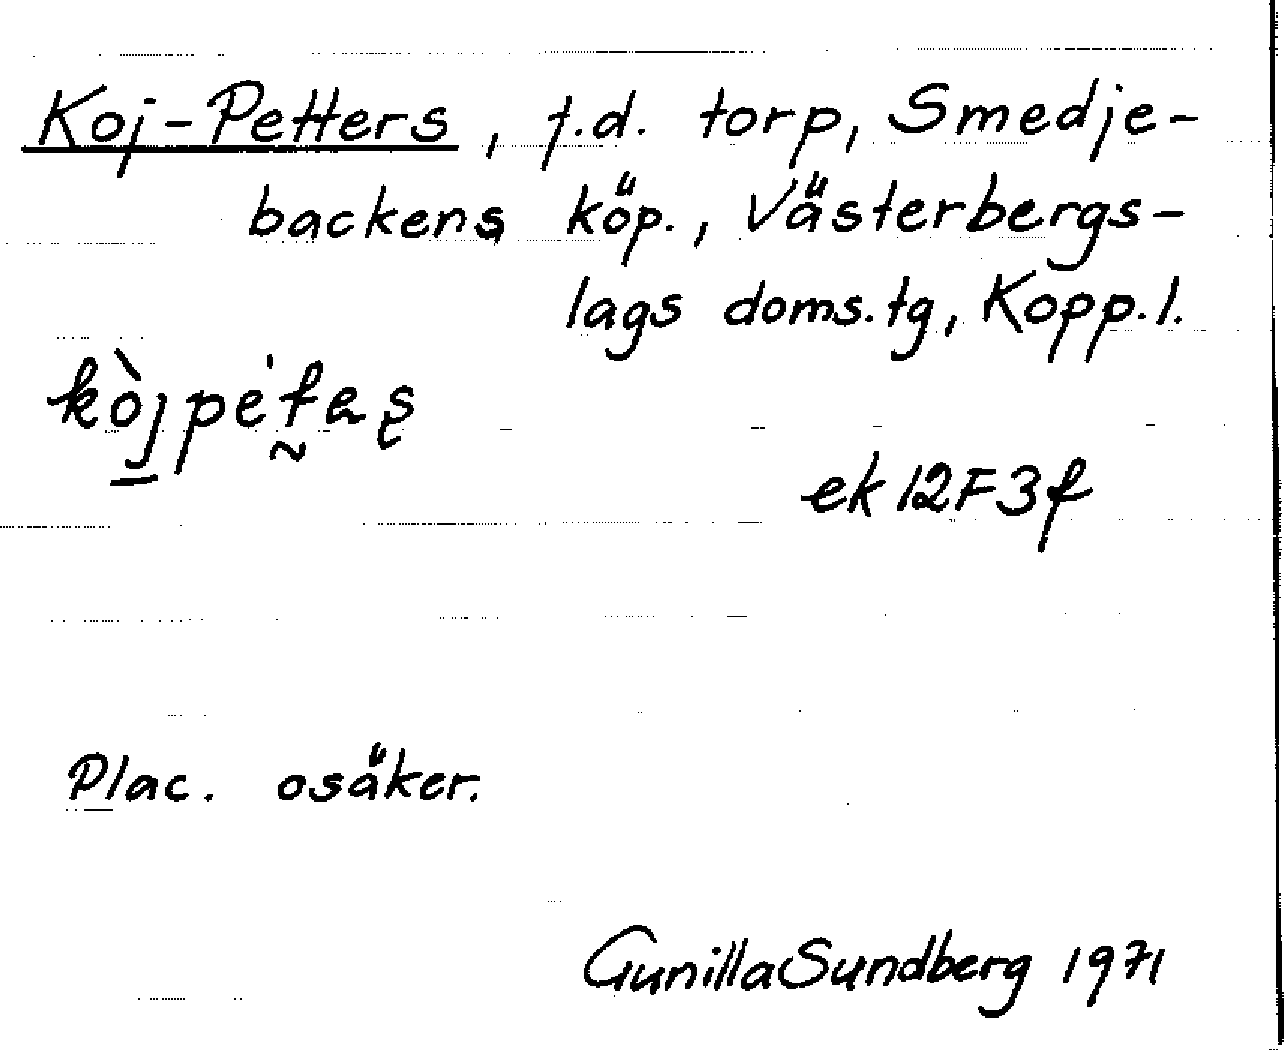 Koj-Petters, f.d. torp, Smedje-
backens köp., Västerbergs-
lags doms.tg, Kopp.l.
kòjpétas̨
ek 12F3f
Plac. osäker.
Gunilla Sundberg 1971